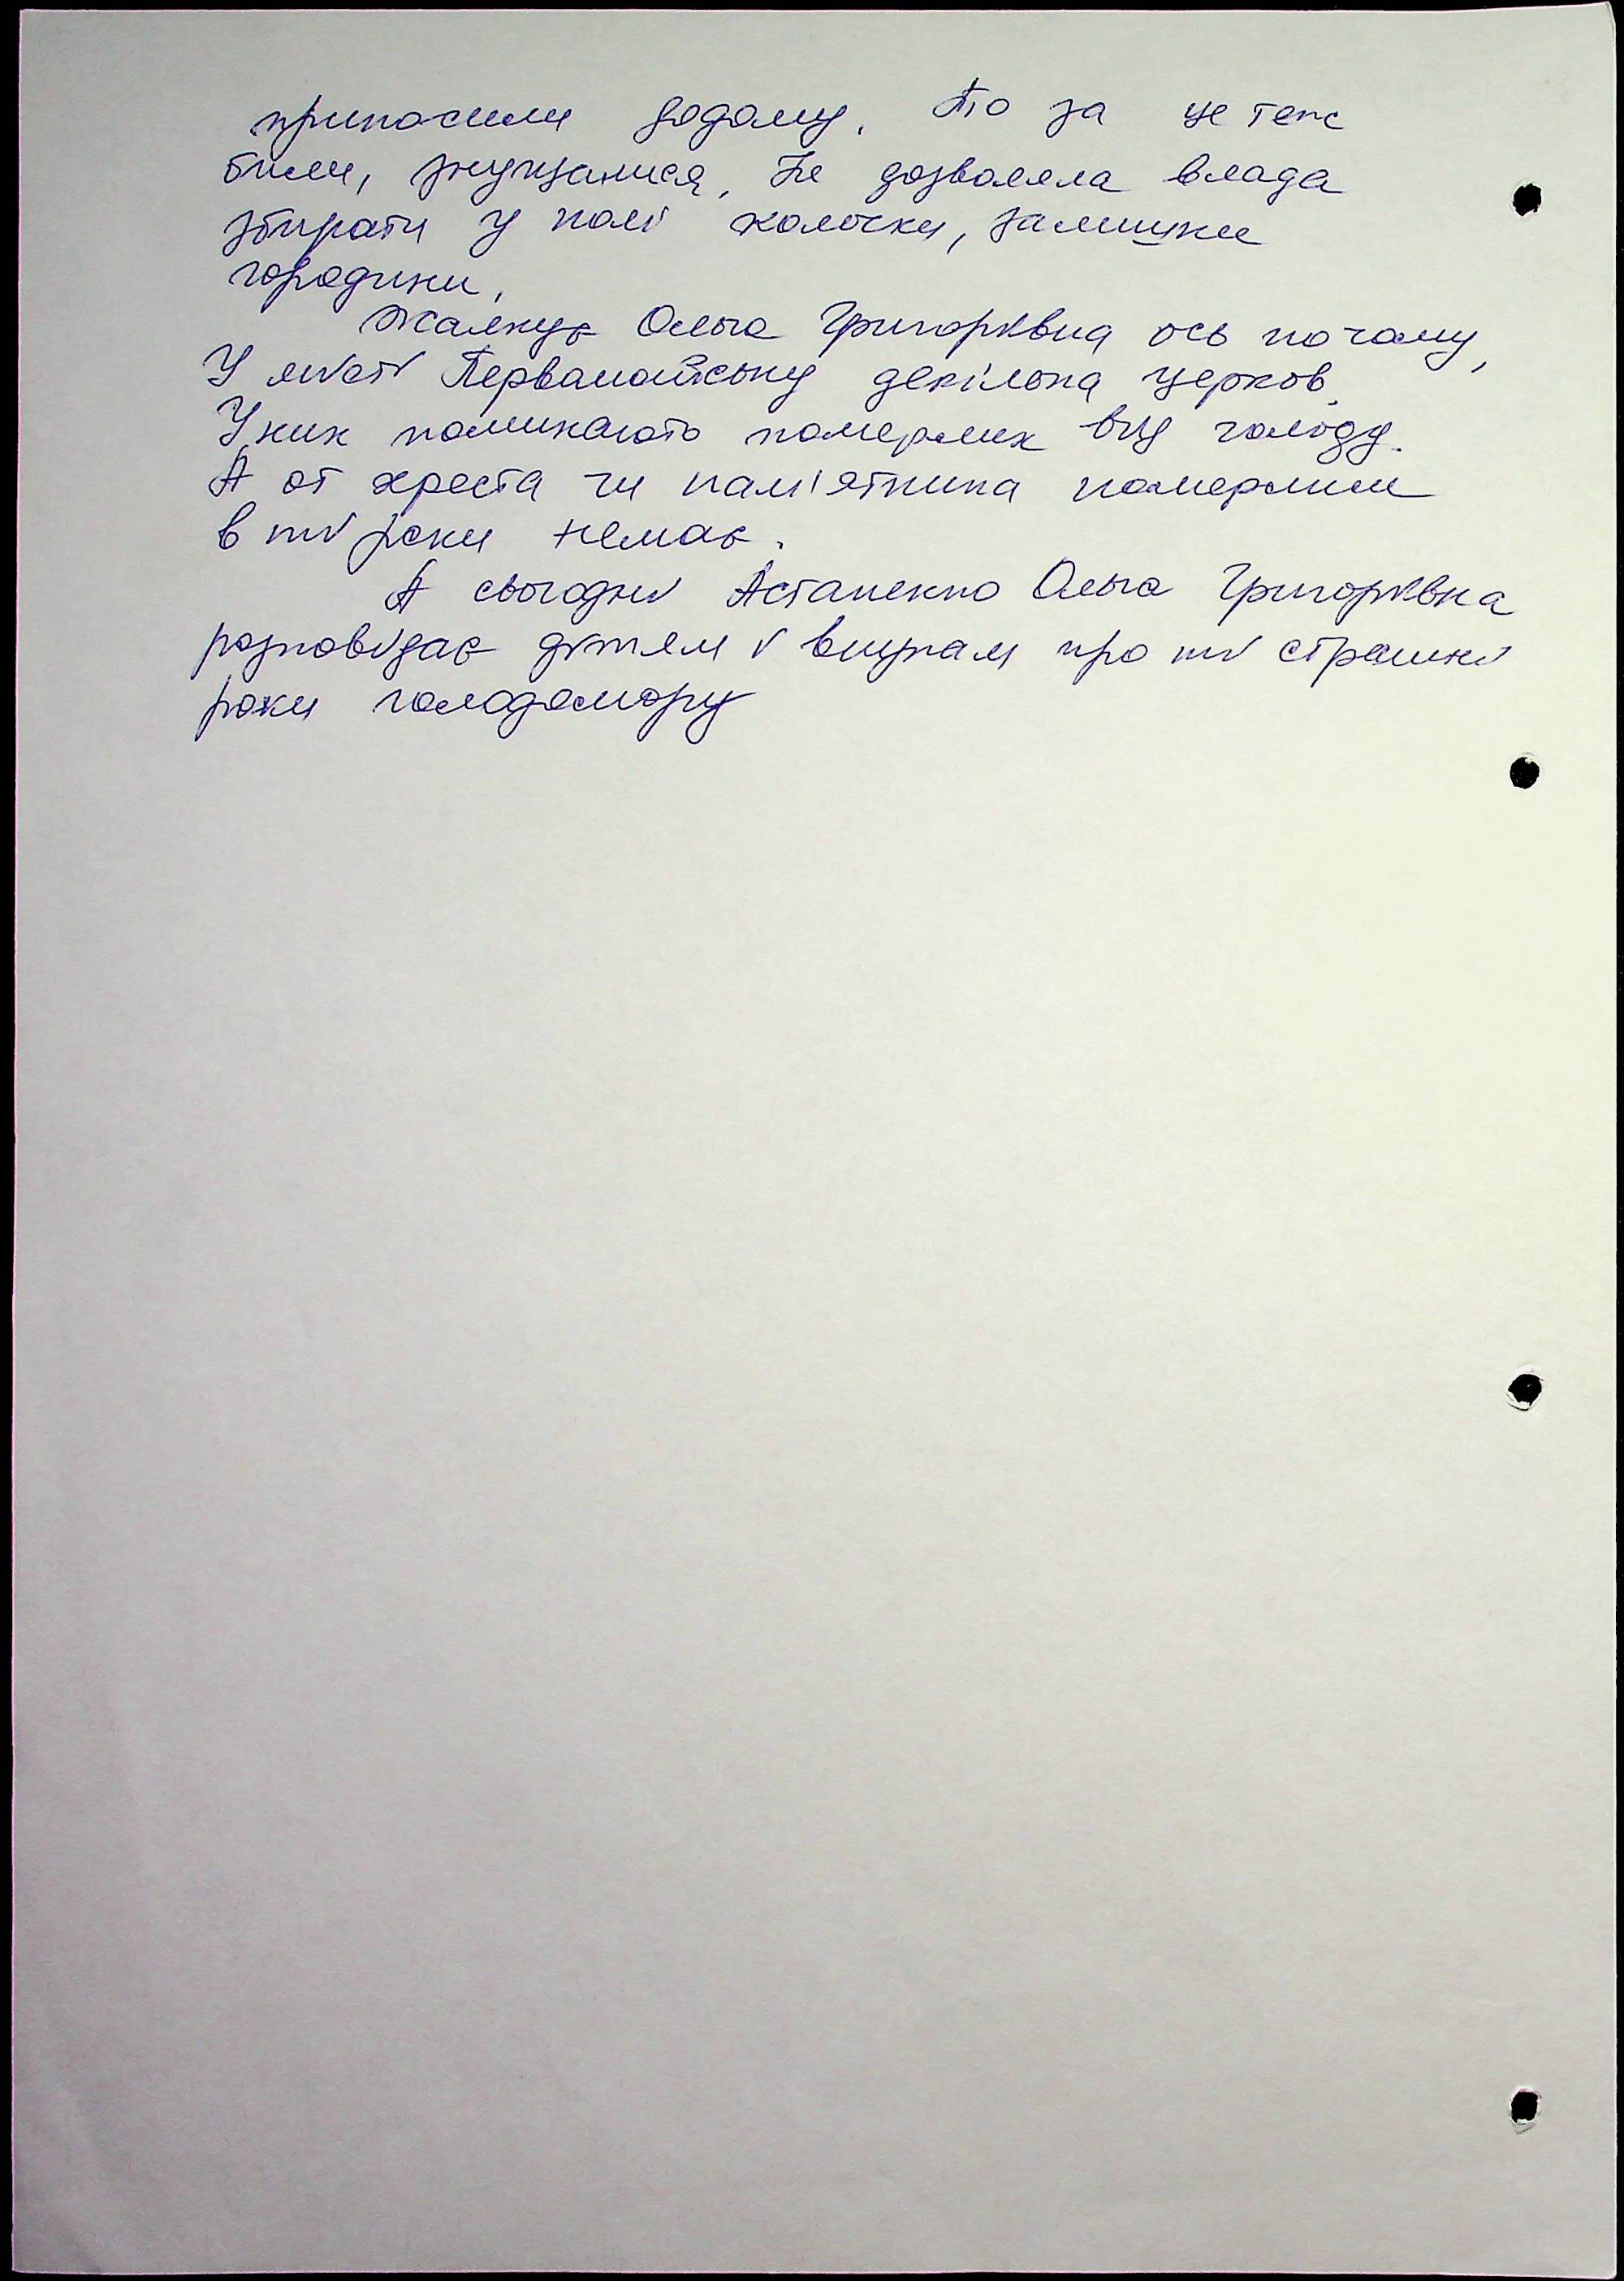 приносили додому. То за це теж
били, знущалися. Не дозволяла влада
збирати у полі колоски, залишки
городини.
Жалкує Ольга Григорівна ось по чому,
У місті Первомайську декілька церков.
У них поминають померлих від голоду.
А от хреста чи пам'ятника померлим
в ті роки немає.
А сьогодні Астаненко Ольга Григорівна
розповідає дітям і внукам про ті страшні
роки голодомору